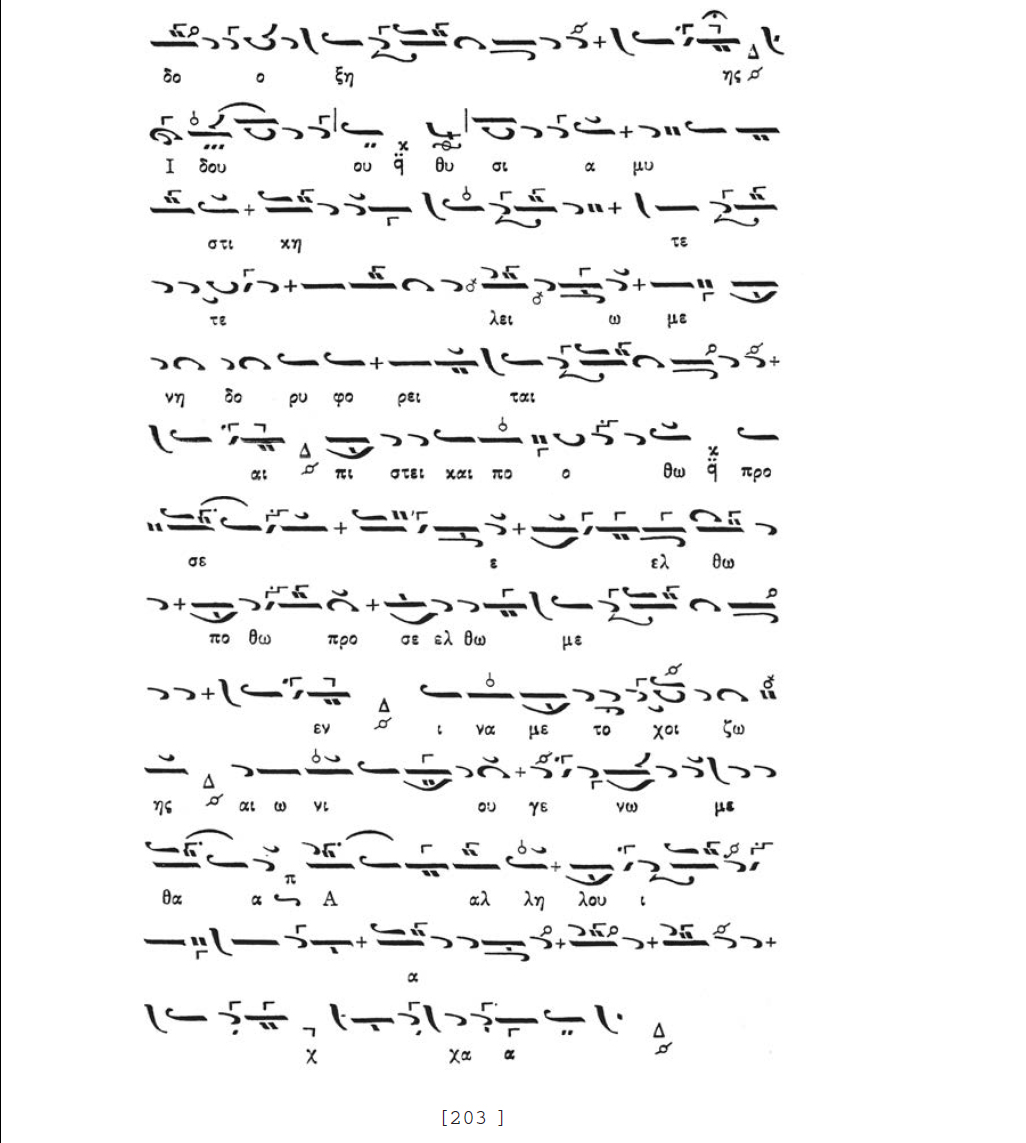 δο ο ξη ης
Ι δου ου θυ σι α μυ
στι κη τε
τε λει ω με
νη δο ρυ φο ρει ται
αι πι στει και πο ο θω προ
σε ε ελ θω
πο θω προ σε ελ θω με
εν ι να με το χοι ζω
ης αι ω νι ου γε νω με
θα α Α αλ λη λου ι
α
χ χα α
[203 ]